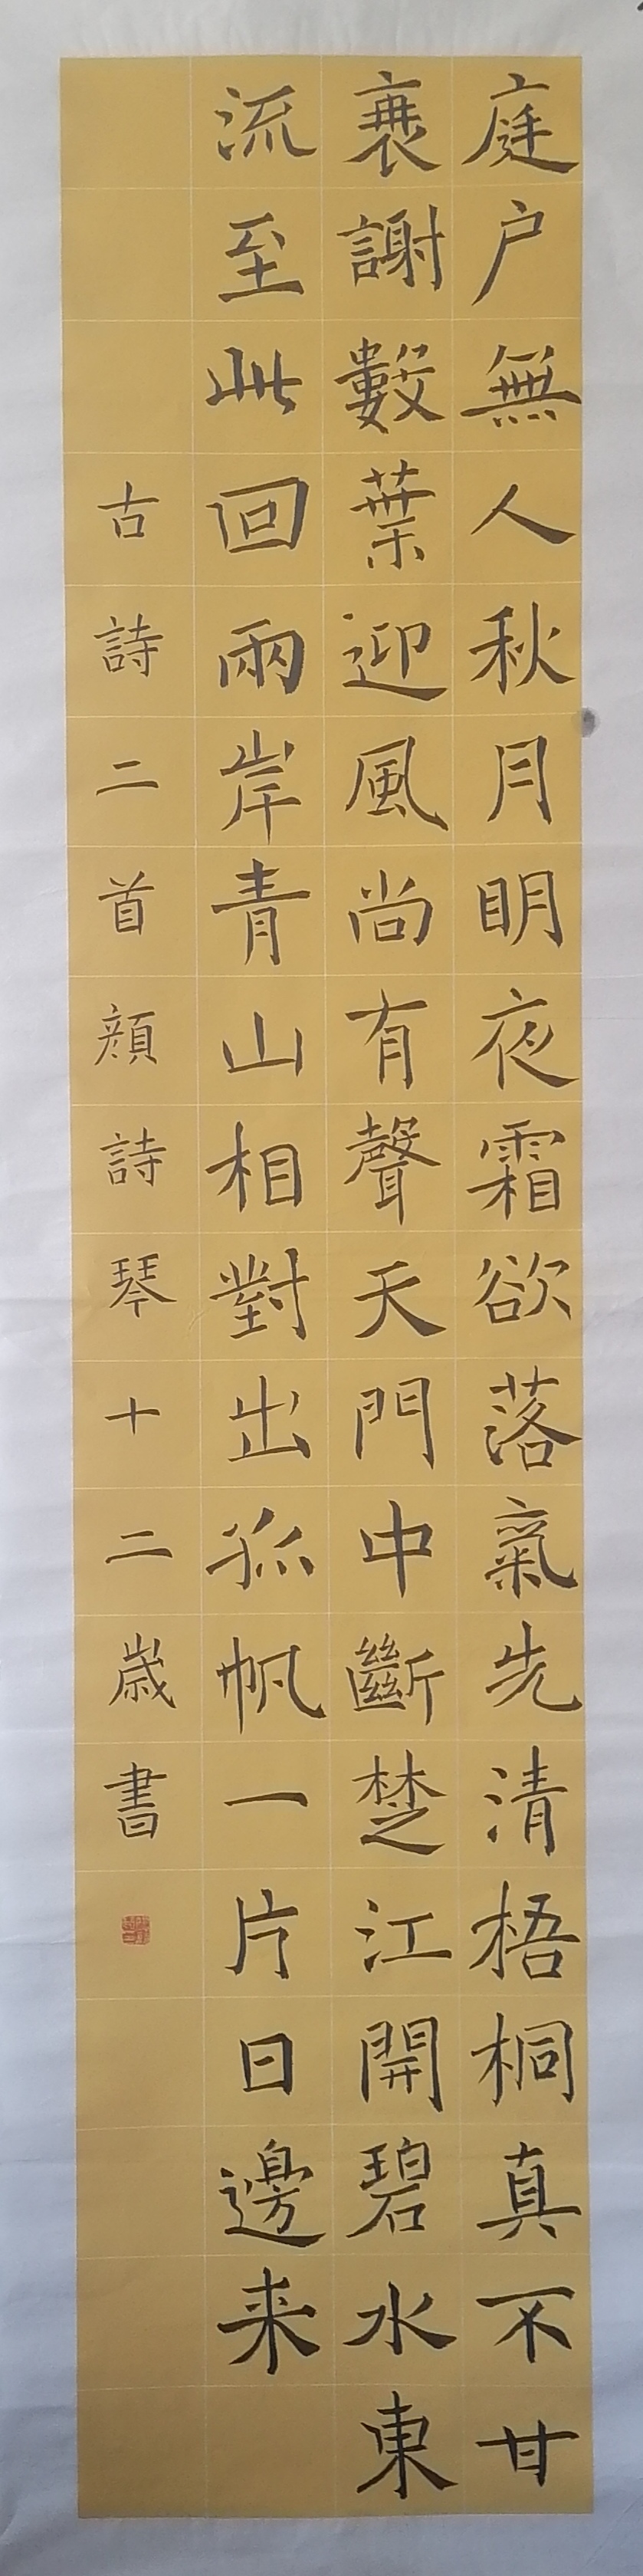 庭户無人秋月明夜霜欲落氣先清梧桐真不甘
衰謝數葉迎風尚有聲天門中斷楚江開碧水東
流至此回兩岸青山相對出孤帆一片日邊来
古詩二首顔詩琴十二歲書